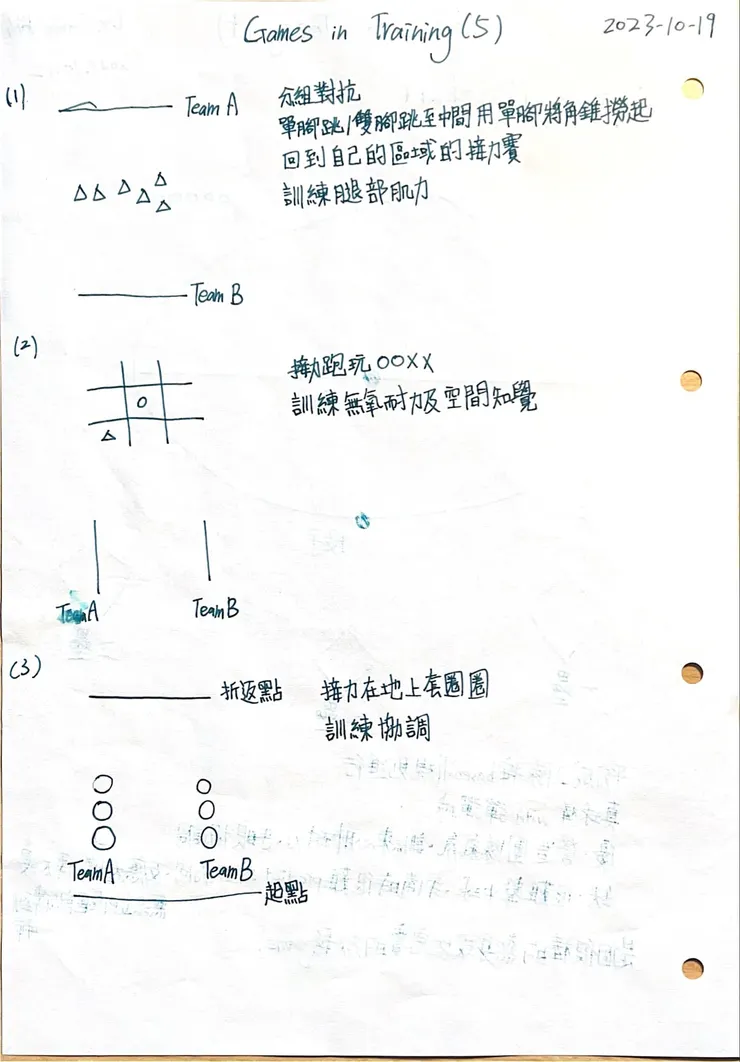 Games in Training (5)
2023-10-19
(1)
Team A
分組對抗
單腳跳/雙腳跳至中間用單腳將角錐撈起
回到自己的區域的接力賽
訓練腿部肌力
Team B
(2)
接力跑玩OOXX
訓練無氧耐力及空間知覺
Team A
Team B
(3)
折返點
接力在地上套圈圈
訓練協調
Team A
Team B
起點